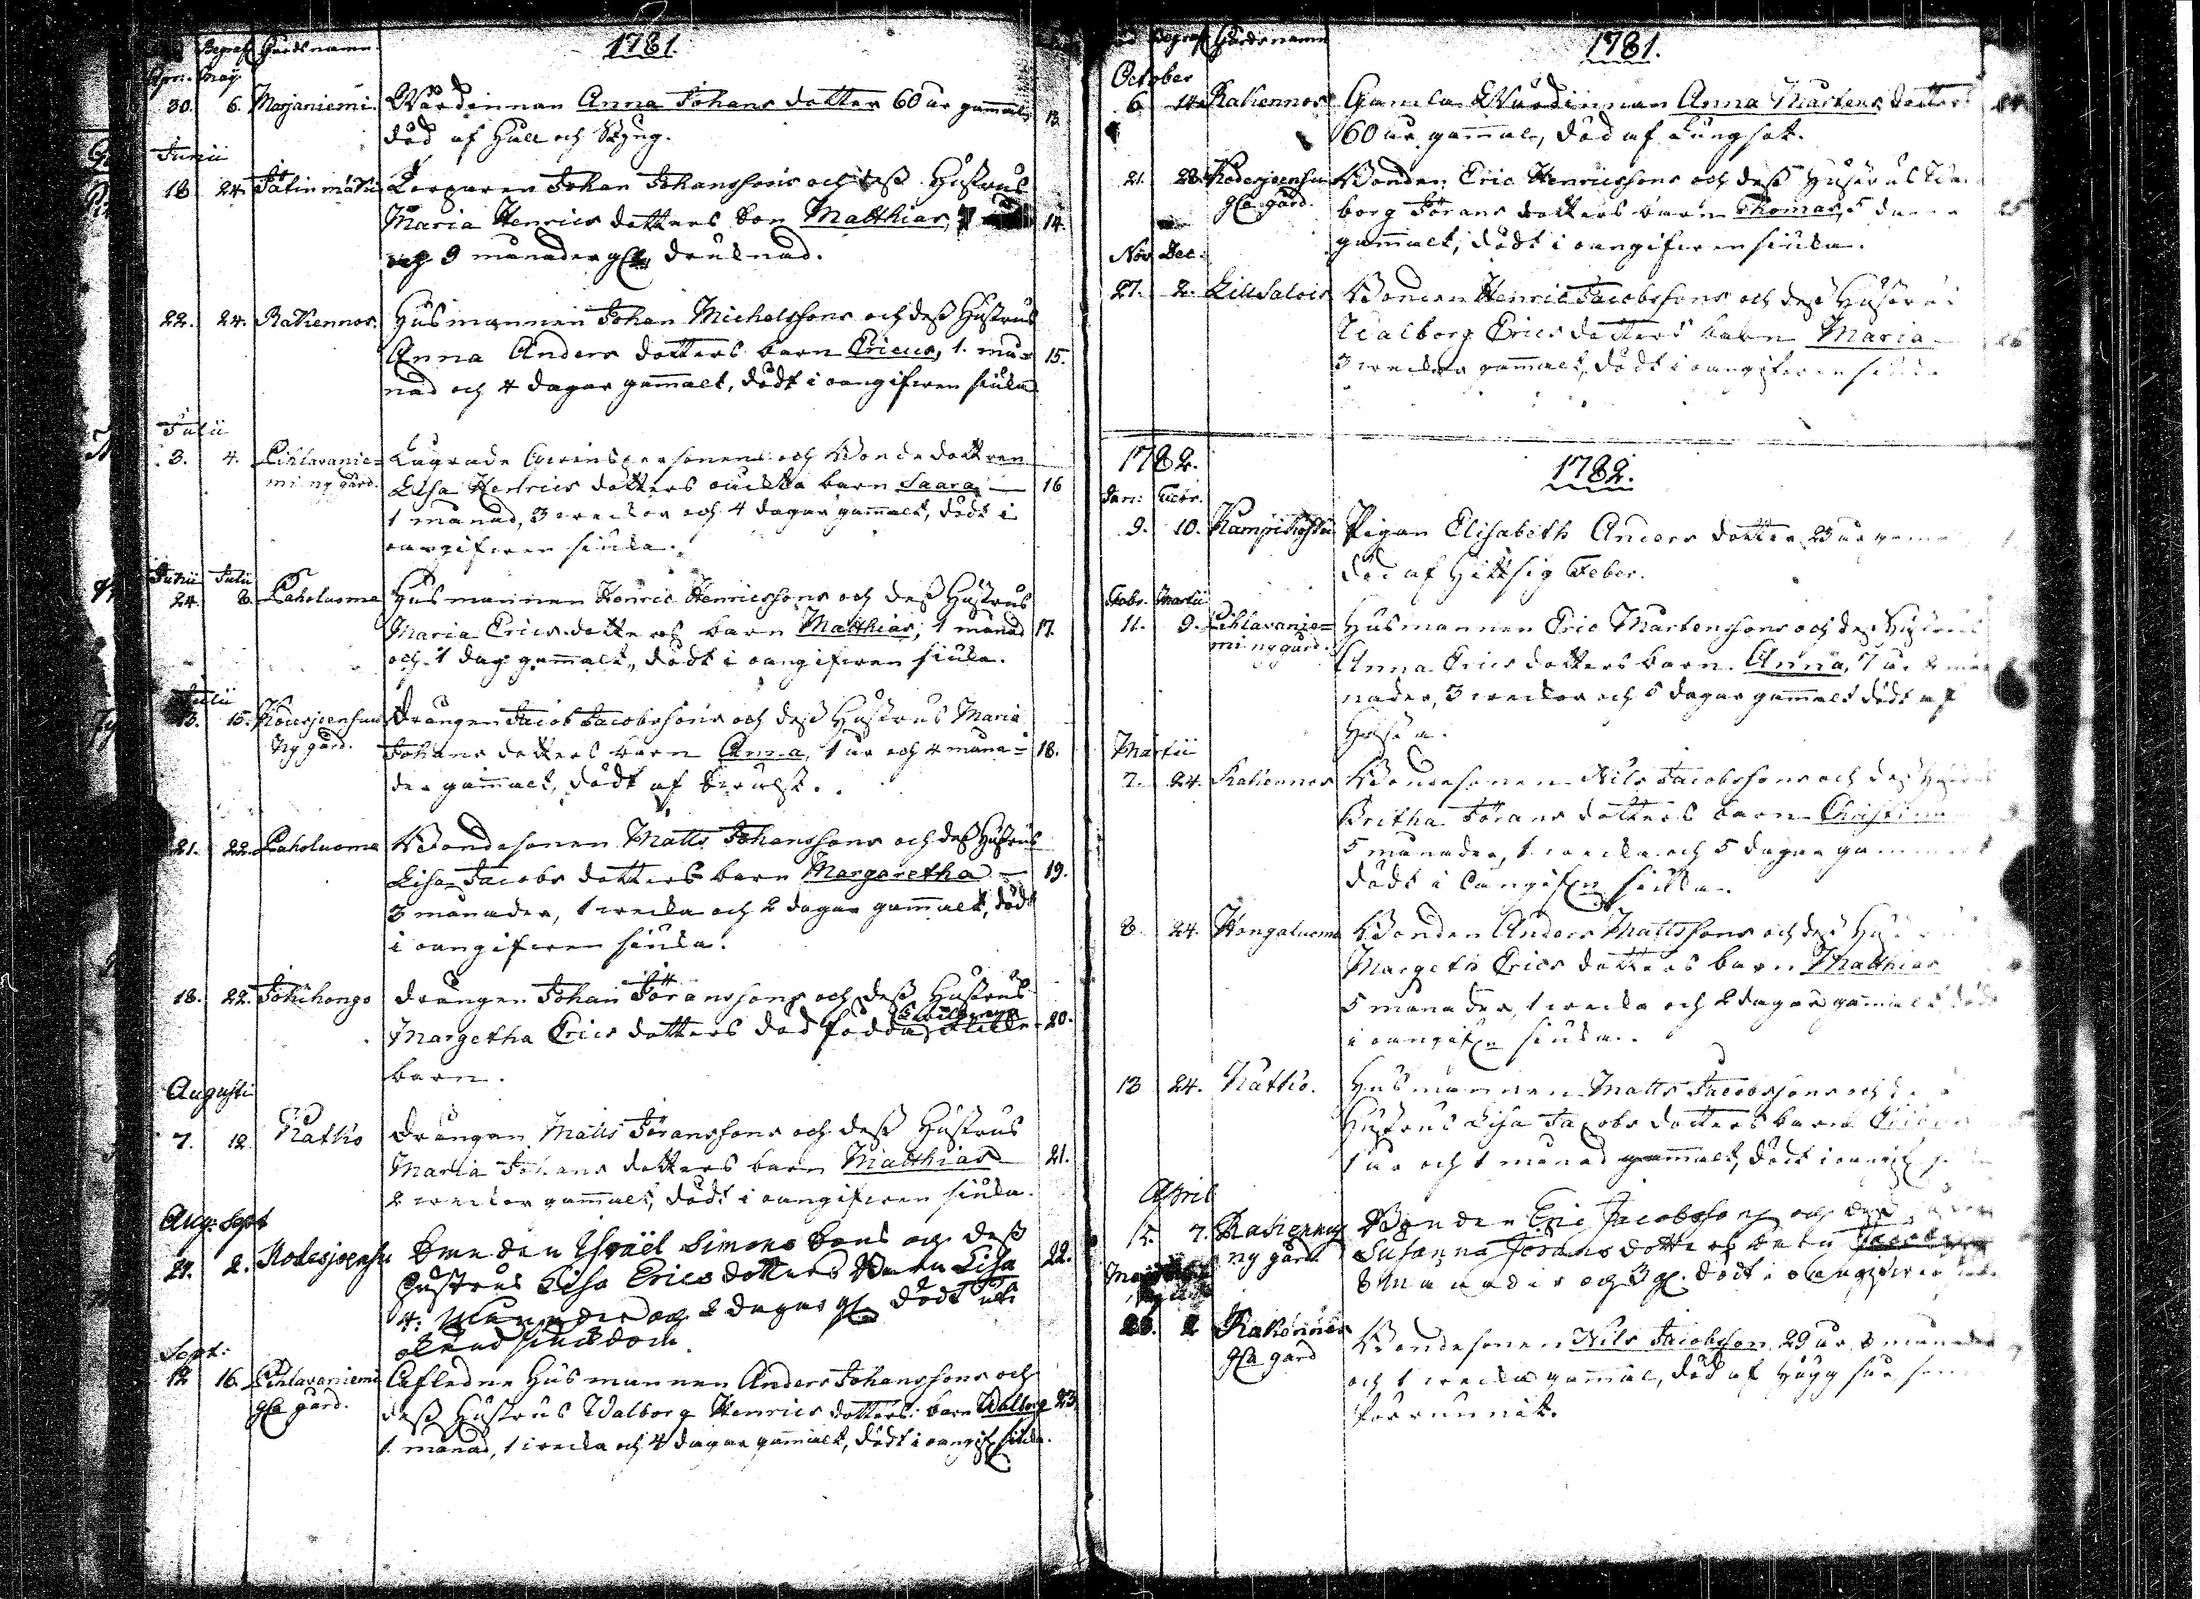 Begraf. Gårds namn.
1781.
Apri. Maij
30. 6. Marjaniemi. Wärdinnan Anna Johans dotter 60 år gammal, 13.
död af Håll och Styng.
Junii
18. 24. Torparen Johan Johanssons och dess Hustrus
Maria Henrics dotters Son Matthias, 14.
och 9 månader drunknad.
22. 24. Rakennos. Husmannen Johan Michelssons och dess Hustrus
Anna Anders dotters barn Ericus, 1. må= 15.
nad och 4 dagar gammalt, dödt i oangifwen siuka
Julii
3. 4. Pihlavanie= Lägrade Qwinspersonens och Bonde dottren
mi ny gård. Lisa Henrics dotters oächta barn Saara, 16
1 månad, 3 weckor och 4 dagar gammalt, dödt i
oangifwen siuka.
Junii Julii
24. 8. Paholuoma Husmannen Henric Henricssons och dess Hustrus
Maria Erics dotters barn Matthias, 1 månad 17.
och 1 dag gammalt, dödt i oangifwen siuka.
Julii
13. 15. Drängen Jacob Jacobssons och dess Hustrus Maria
Ny gård. Johans dotters barn Anna, 1 år och 4 måna= 18.
der gammalt, dödt af
21. 22. Paholuoma Bondesonen Matts Johanssons och dess Hustrus
Lisa Jacobs dotters barn Margaretha 19.
3 månader, 1 wecka och 2 dagar gammalt, dödt
i oangifwen siuka.
18. 22. Jokihongo Drängen Johan Göranssons och dess Hustrus
Margetha Erics dotters död födda 20.
barn.
Augusti
7. 12. Nattio Drängen Matts Göranssons och dess Hustrus
Maria Johans dotters barn Matthias 21.
2 weckor gammalt, dödt i oangifwen siuka.
Aug: Sept
29. 2. Bonden Israël Simons Sons och dess 22.
Hustrus Lisa Erics dotters Barn Lisa
4. månader och 2 dagar dödt uti
okänd siukdom
Sept:
12 16. Pihlavaniemi Afledne Husmannen Anders Johanssons och
gla gård. dess Hustrus Walborg Henrics dotters barn Walborg 23.
1 månad, 1 wecka och 4 dagar gammalt, dödt i oangif. siuka.
Begraf Gårds namn
1781.
October
6. 14. Rakennos Gamla Wärdinnan Anna Mårtens dotter
60 år gammal, död af Lungsot.
21. 28. Bonden Eric Henricssons och dess Hustrus Wal
gla gård. borg Görans dotters barn Thomas, 5 25
gammalt, dödt i oangifwen siuka.
Nov. Dec.
27. 2. Lill Salois Bonden Henric Jacobssons och dess Hustrus
Walborg Erics dotters barn Maria 26
3 weckor gammalt, dödt i oangifwen siuka
1782.
1782.
Jan: Febr.
9. 10. Pigan Elisabeth Anders dotter 23 år
död af Hitsig Feber.
Febr. Martii
11. 9. Pihlavanie= Husmannen Eric Mårtenssons och dess Hustrus
mi ny gård. Anna Erics dotters barn Anna, 1 år 2 må
nader, 3 weckor och 5 dagar gammalt dödt af
Martii
7. 24. Rakennos Bondesonen Nils Jacobssons och dess
Britha Görans dotters barn Christina
5 månader, 1 wecka och 5 dagar
dödt i oangifn siuka.
8. 24. Hongaluoma Bonden Anders Mattssons och dess
Margeth Erics dotters barn Matthias
5 månader, 1 wecka och 2 dagar gammalt dödt
i oangifn siuka.
13 24. Nattio. Husmannen Matts Jacobssons och
Hustrus Lisa Jacobs dotters barn
1 år och 1 månad gammalt, dödt i oangif.
April
7. Rakennos Bonden Eric Jacobssons och dess
ny gård Susanna Görans dotters barn
8 månader och 3 dödt i oangifwen
28. 2 Rakennos Bondesonen Nils Jacobsson 29 år, 8 månader
gla gård och 1 wecka gammal, död af